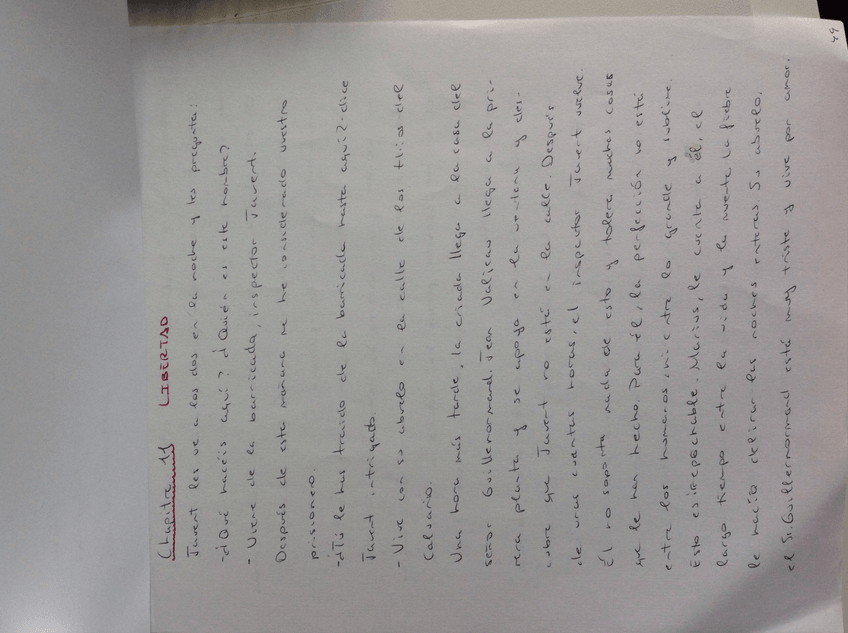 49
Chapitre 11 LIBERTAD
Javert les ve a los dos en la noche y les pregunta:
-¿Qué hacéis aquí? ¿Quién es este hombre?
- Viene de la barricada, inspector Javert.
Después de esta mañana me he considerado vuestro
prisionero.
-¿Tú le has traido de la barricada hasta aquí?-dice
Javert intrigado.
- Vive con su abuelo en la calle de las Hijas del
Calvario.
Una hora más tarde, la criada llega a la casa del
señor Guillenormand. Jean Valjean llega a la pri-
mera planta y se apoya en la ventana y des-
cubre que Javert no está en la calle. Después
de unas cuantas horas, el inspector Javert vuelve.
Él no soporta nada de esto y tolera muchas cosas
que le han hecho. Para él, la perfección no está
entre los humanos ini entre lo grande y sublime.
Esto es irreprochable. Marius, le cuenta a él, el
largo tiempo entre la vida y la muerte. La fiebre
le hacía delirar las noches enteras. Su abuelo,
el Sr. Guillernormand está muy triste y vive por amor.